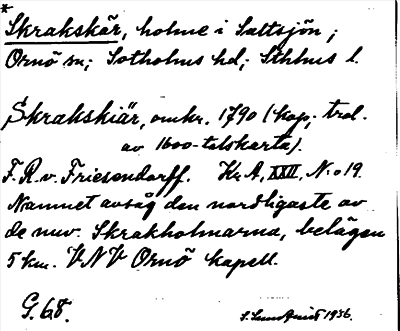 *
Skrakskär, holme i Saltsjön;
Ornö sn; Sotholms hd; Sthlms l.
Skrakskiär, omkr. 1790 (kop. trol.
av 1600-talskarta).
F. R. v. Friesendorff. Kr. A, XXII, N:o 19.
Namnet avsåg den nordligaste av
de nuv. Skrakholmarna, belägen
5 km. VNV Ornö kapell.
G. 68.
1936.